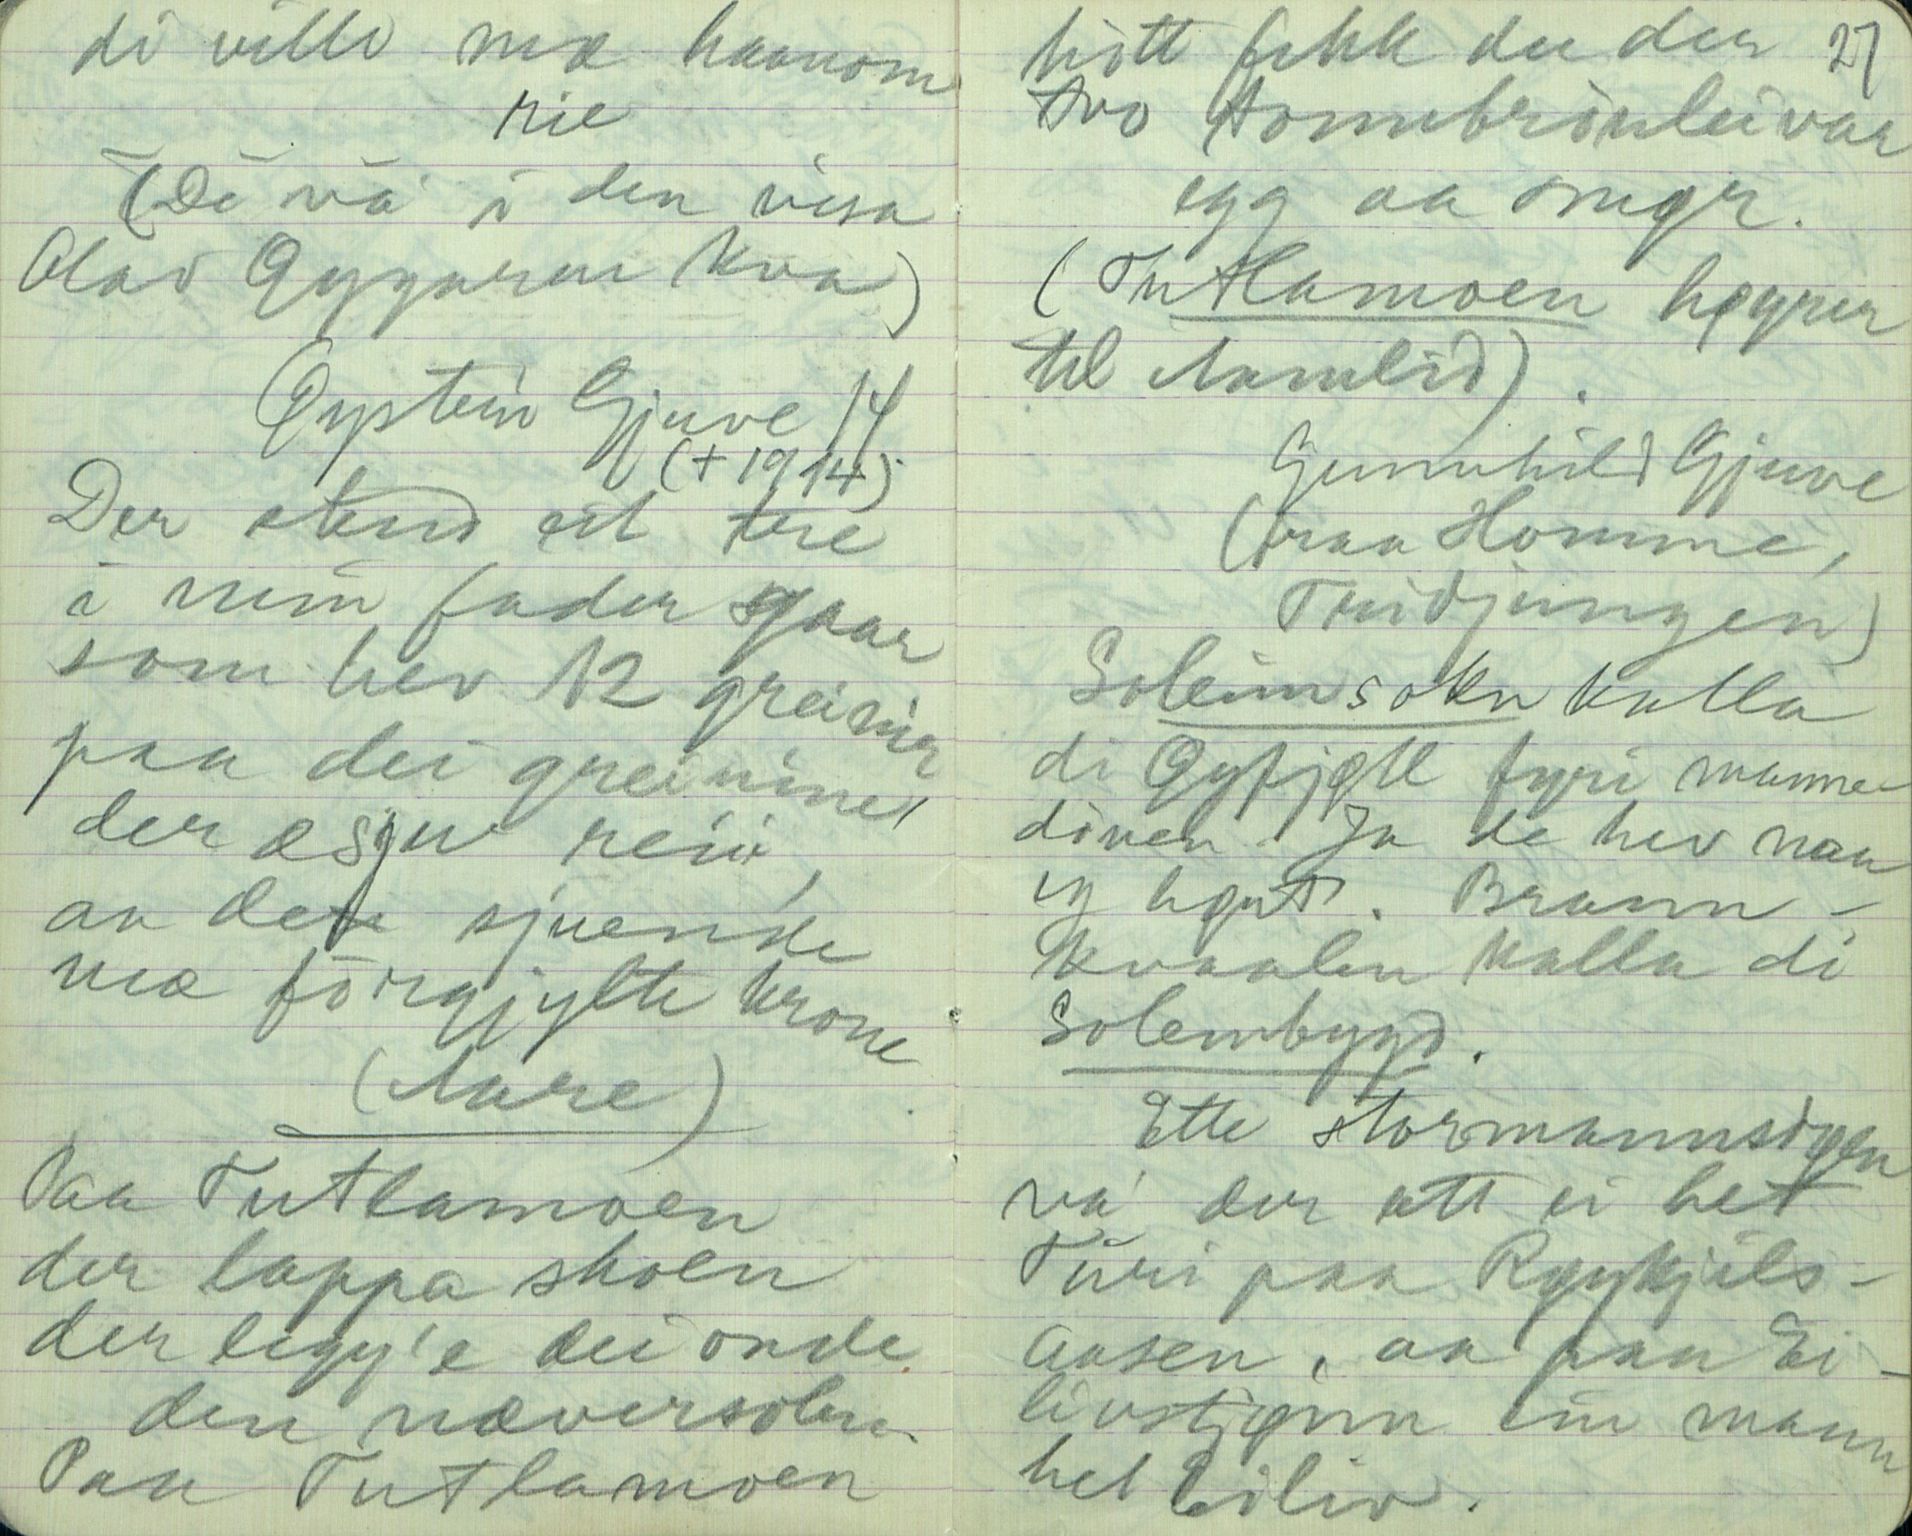 di ville mæ haanom
rie
(Dĕ vā i den visa
Olav Gygaren kva)
Øystein Gjuve 14
(+ 1914)
Der stend eit tre
i min fader gaar
som hev 12 greinir
paa dei greinine,
der æ sju reiir,
aa den sjuende
mæ förgjylte krone
(Aare)
Paa Tutlamoen
der lappa skoen
der legg'e dei onde
den næversolen.
Paa Tutlamoen
27
hött fekk du der
tvo Hommbrönleivar
egg aa smør.
(Tutlamoen høyrer
til Aamlid).
Gunnhild Gjuve
(fraa Homme,
Tridjungen)
Soleimsokn kalla
di Øyfjøll fyri manne-
döuen. Ja de hev naa
eg høyrt. Brunn-
kvaalen kalla di
Solembygd.
Ette stormannsdøen
vá der att ei het
Turi paa Røykjils-
aasen, aa paa Ei-
livstjønn ein mann
het Eiliv.